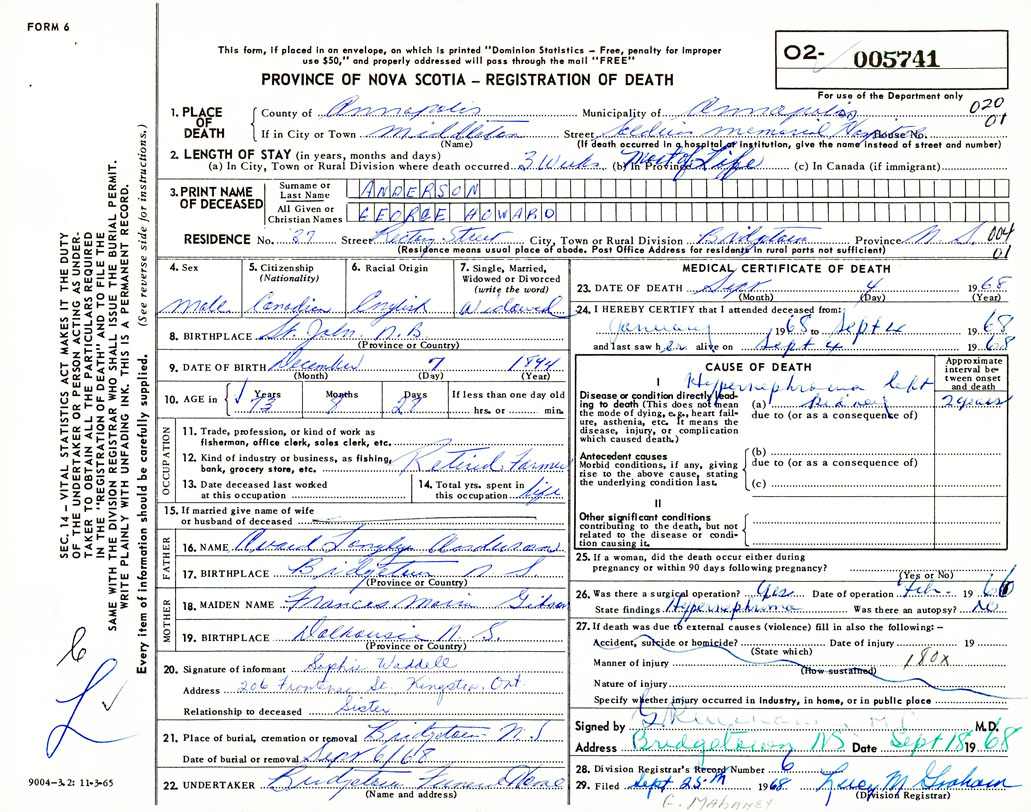 FORM 6
This form, if placed in an envelope, on which is printed "Dominion Statistics – Free, penalty for improper
use $50," and properly addressed will pass through the mail "FREE"
PROVINCE OF NOVA SCOTIA – REGISTRATION OF DEATH
O2- 005741
For use of the Department only
020
01
1. PLACE OF DEATH
County of Annapolis Municipality of Annapolis
If in City or Town Middleton Street Soldiers Memorial Hospital House No.
(Name) (If death occurred in a hospital or institution, give the name instead of street and number)
2. LENGTH OF STAY (in years, months and days)
(a) In City, Town or Rural Division where death occurred 3 Weeks (b) In Province Most of Life (c) In Canada (if immigrant)
3. PRINT NAME OF DECEASED
Surname or Last Name ANDERSON
All Given or Christian Names GEORGE HOWARD
RESIDENCE No. 37 Street Rectory Street City, Town or Rural Division Bridgetown Province N S. 004
(Residence means usual place of abode. Post Office Address for residents in rural parts not sufficient) 01
4. Sex
Male
5. Citizenship (Nationality)
Canadian
6. Racial Origin
English
7. Single, Married, Widowed or Divorced (write the word)
Widowed
8. BIRTHPLACE St. John, N.B
(Province or Country)
9. DATE OF BIRTH December 7 1894
(Month) (Day) (Year)
10. AGE in Years Months Days If less than one day old
73 8 27 hrs. or min.
OCCUPATION
11. Trade, profession, or kind of work as
fisherman, office clerk, sales clerk, etc.
12. Kind of industry or business, as fishing,
bank, grocery store, etc. Retired Farmer
13. Date deceased last worked
at this occupation
14. Total yrs. spent in
this occupation life
15. If married give name of wife
or husband of deceased
FATHER
16. NAME Avard Longley Anderson
17. BIRTHPLACE Bridgetown N S.
(Province or Country)
MOTHER
18. MAIDEN NAME Frances Maria Gibson
19. BIRTHPLACE Dalhousie N. S.
(Province or Country)
20. Signature of informant Sophie Waddell
Address 206 Frontenac St. Kingston, Ont
Relationship to deceased Sister
21. Place of burial, cremation or removal Bridgetown N.S
Date of burial or removal Sept 6/68
22. UNDERTAKER Bridgetown Funeral Home
(Name and address)
MEDICAL CERTIFICATE OF DEATH
23. DATE OF DEATH Sept 4 1968
(Month) (Day) (Year)
24. I HEREBY CERTIFY that I attended deceased from:
January 1968 to Sept 4 1968
and last saw h alive on Sept 4 1968
CAUSE OF DEATH
Approximate interval between onset and death
I
Disease or condition directly leading to death (This does not mean
the mode of dying, e.g., heart failure, asthenia, etc. It means the
disease, injury, or complication
which caused death.)
Hypernephroma left
(a) Kidney 2 years
due to (or as a consequence of)
Antecedent causes
Morbid conditions, if any, giving
rise to the above cause, stating
the underlying condition last.
(b)
due to (or as a consequence of)
(c)
II
Other significant conditions
contributing to the death, but not
related to the disease or condition causing it.
25. If a woman, did the death occur either during
pregnancy or within 90 days following pregnancy?
(Yes or No)
26. Was there a surgical operation? Yes Date of operation Feb. 1966
State findings Hypernephroma Was there an autopsy? No
27. If death was due to external causes (violence) fill in also the following: –
Accident, suicide or homicide? Date of injury 19
(State which)
Manner of injury 180X
(How sustained)
Nature of injury
Specify whether injury occurred in industry, in home, or in public place
Signed by M.D.
Address Bridgetown NS Date Sept 18 1968
28. Division Registrar's Record Number 6
29. Filed Sept 25th 1968 Lucy M Graham
(Division Registrar)
E. MAHANEY
SEC. 14 – VITAL STATISTICS ACT MAKES IT THE DUTY
OF THE UNDERTAKER OR PERSON ACTING AS UNDER-
TAKER TO OBTAIN ALL THE PARTICULARS REQUIRED
IN THE "REGISTRATION OF DEATH" AND TO FILE THE
SAME WITH THE DIVISION REGISTRAR WHO SHALL ISSUE THE BURIAL PERMIT.
WRITE PLAINLY WITH UNFADING INK. THIS IS A PERMANENT RECORD.
Every item of information should be carefully supplied. (See reverse side for instructions.)
9004-3.2: 11-3-65